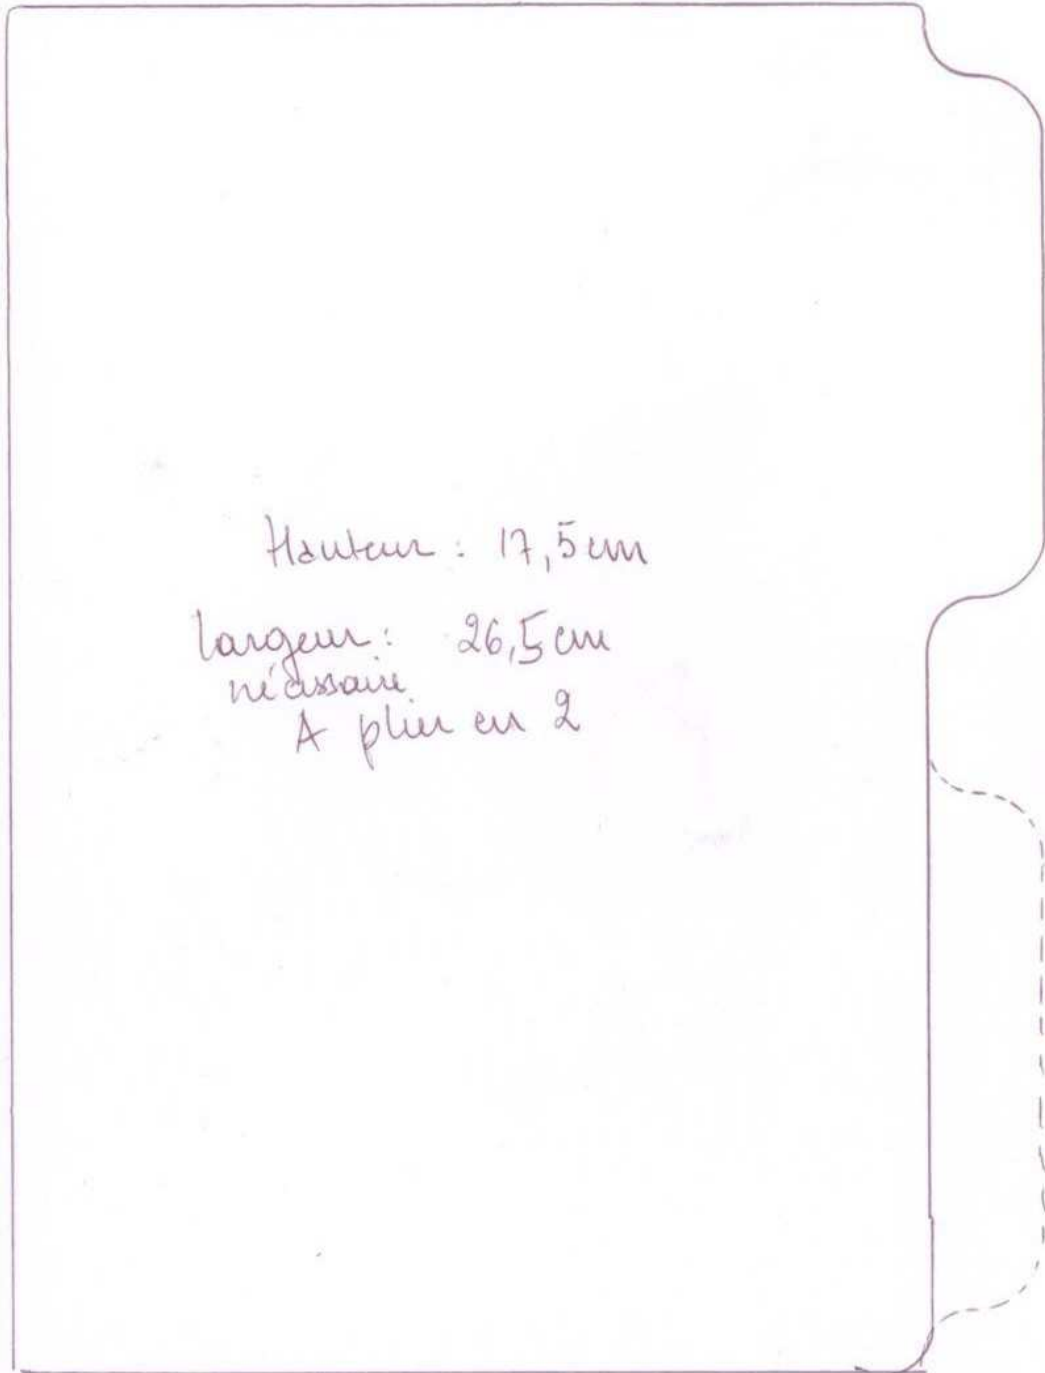 Hauteur : 17,5 cm
largeur : 26,5 cm
nécessaire
A plier en 2